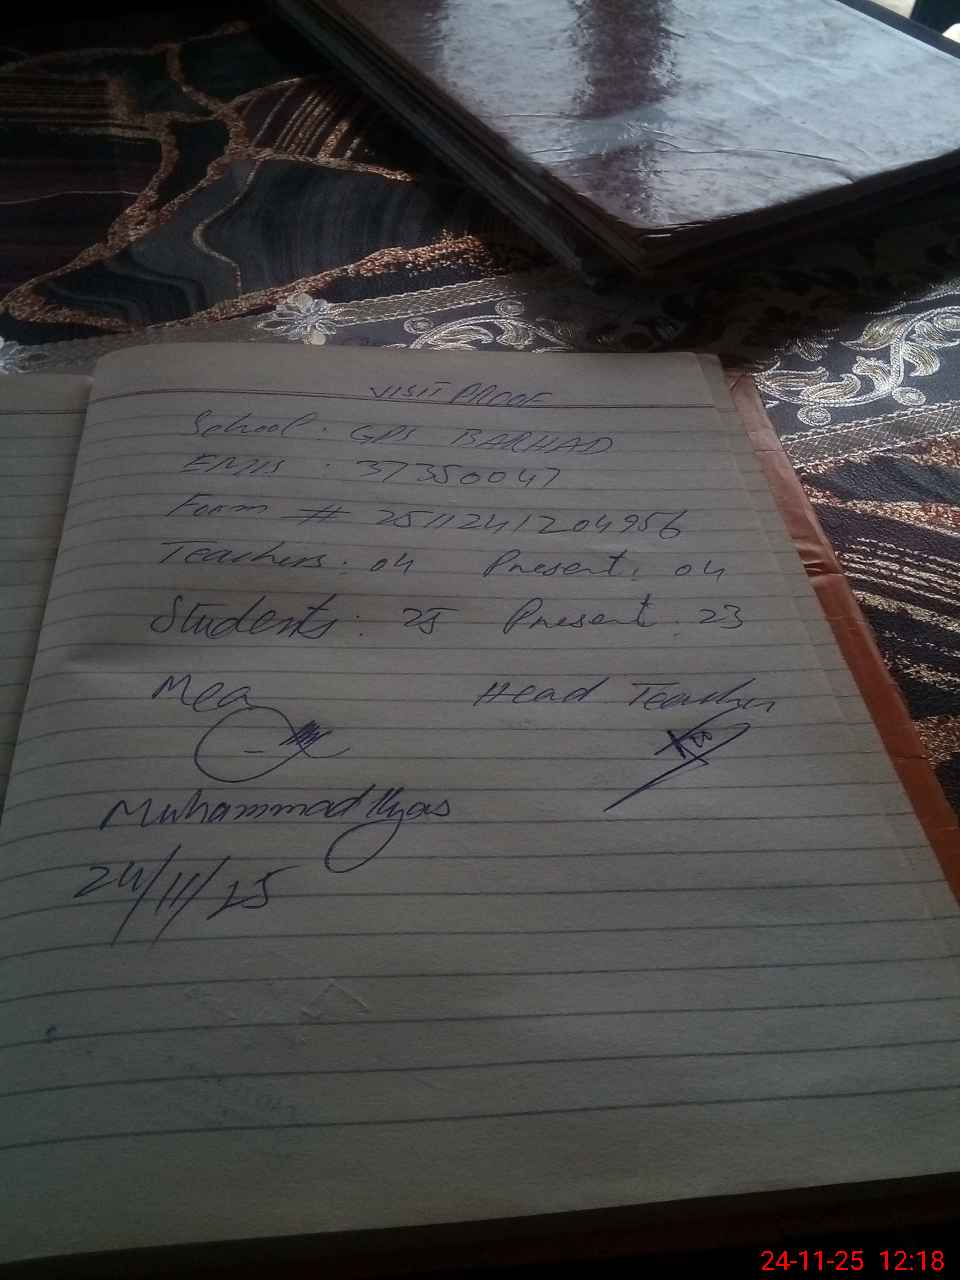 VISIT PROOF
School : GPS BARHAD
EMIS : 37350047
Form # 2511241204956
Teachers : 04 Present : 04
Students : 25 Present : 23
Mea Head Teacher
Muhammad Ilyas
24/11/25
24-11-25 12:18